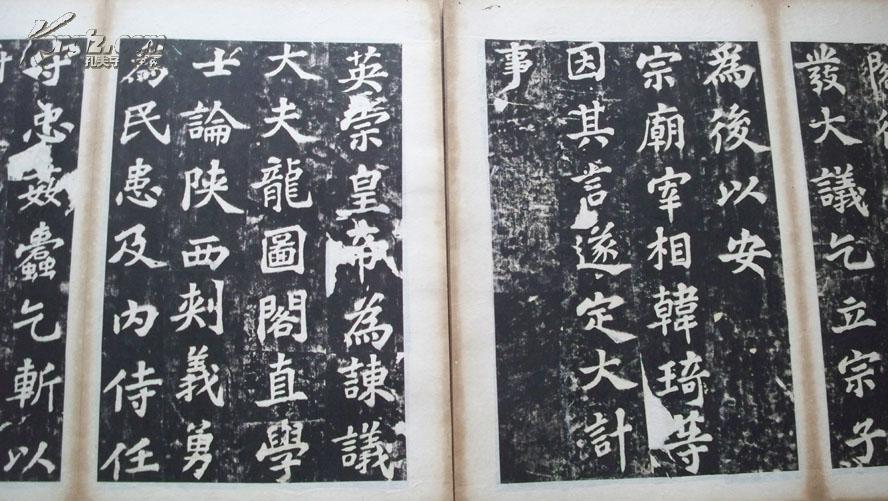 發大議乞立宗子
為後以安
宗廟宰相韓琦等
因其言遂定大計
事
英宗皇帝為諫議
大夫龍圖閣直學
士論陝西刺義勇
為民患及內侍任
守忠姦蠹乞斬以